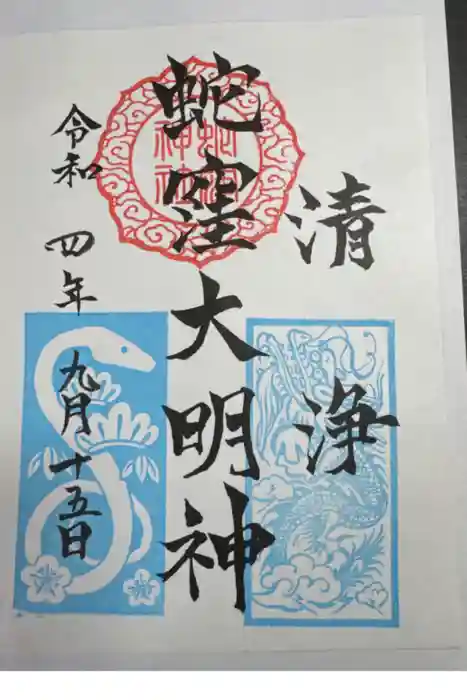 清浄
蛇窪大明神
令和四年九月十五日
蛇窪神社